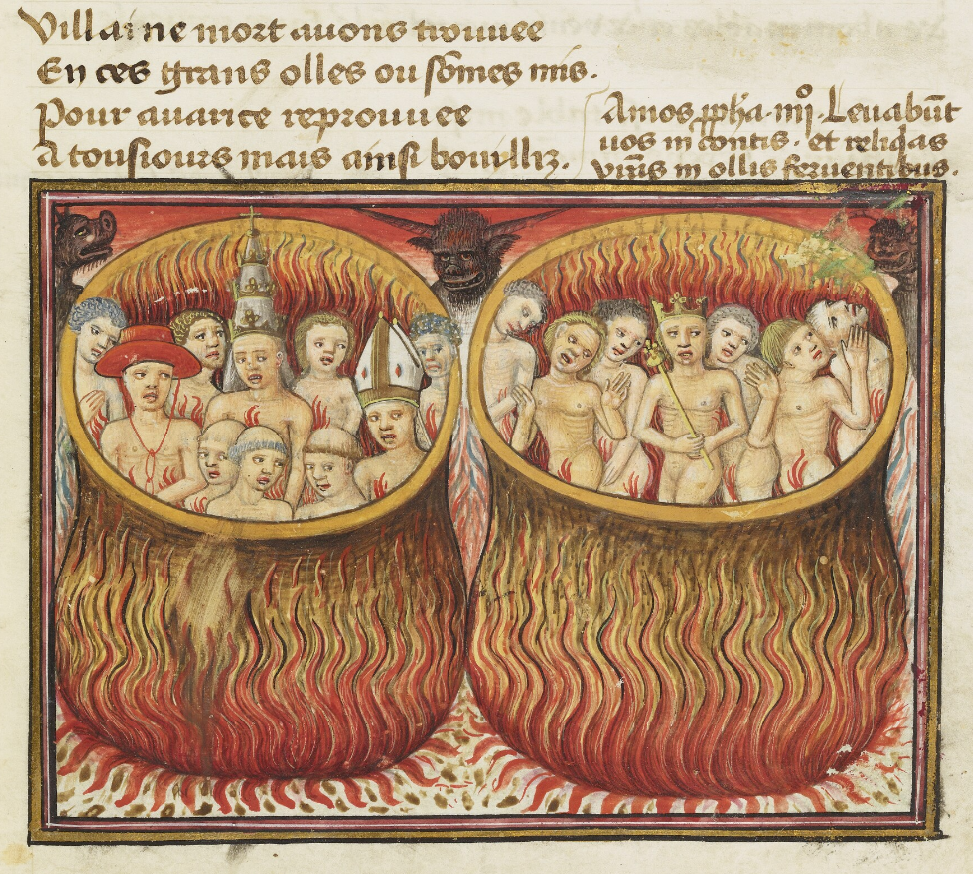 Villaine mort auons trouuee
En ces grans olles ou sõmes mis.
Pour auarice reprouuee
A tousiours mais ainsi bouilliz.
Amos ꝓpħa · iiijº · Leuabũt
uos in contis · et reliq̃as
vr̃as in ollis feruentibus.